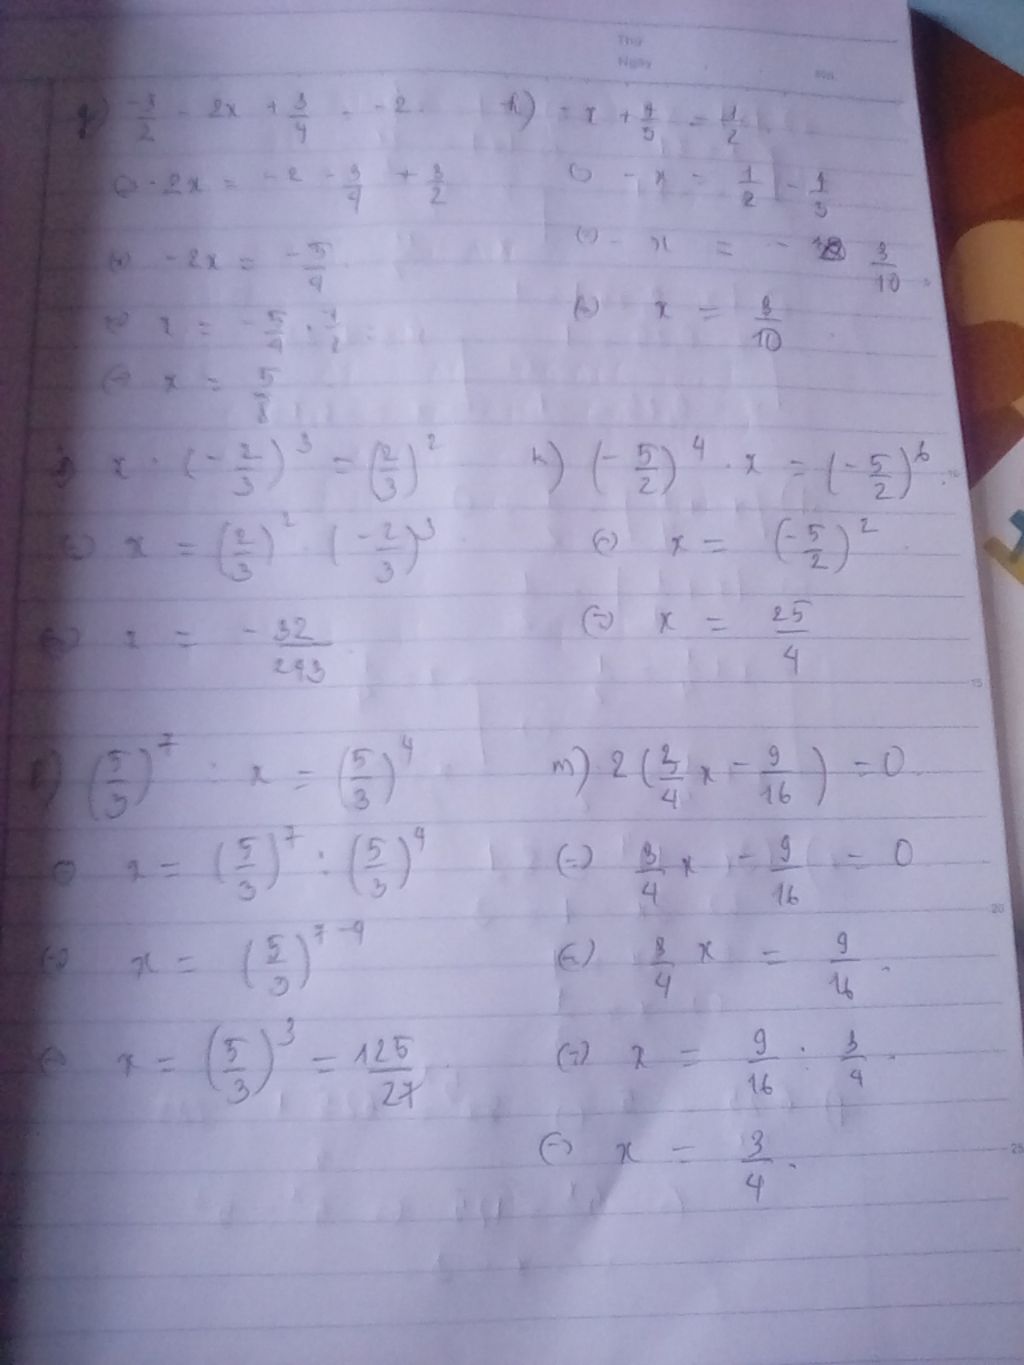 Thứ
Ngày
g) -3/2 - 2x + 3/4 = -2
(=) -2x = -2 - 3/4 + 3/2
(=) -2x = -5/4
(=) x = -5/4 :
(=) x = 5/8
h) -x + 4/5 = 1/2
(=) -x = 1/2 - 4/5
(=) -x = - 3/10
(=) x = 3/10
x . (-2/3)^3 = (2/3)^2
(=) x = (2/3)^2 . (-2/3)^3
(=) x = -32/243
k) (-5/2)^4 . x = (-5/2)^6
(=) x = (-5/2)^2
(=) x = 25/4
l) (5/3)^7 : x = (5/3)^4
(=) x = (5/3)^7 : (5/3)^4
(=) x = (5/3)^7-4
(=) x = (5/3)^3 = 125/27
m) 2(3/4 x - 9/16) = 0
(=) 3/4 x - 9/16 = 0
(=) 3/4 x = 9/16
(=) x = 9/16 : 3/4
(=) x = 3/4
15
20
25